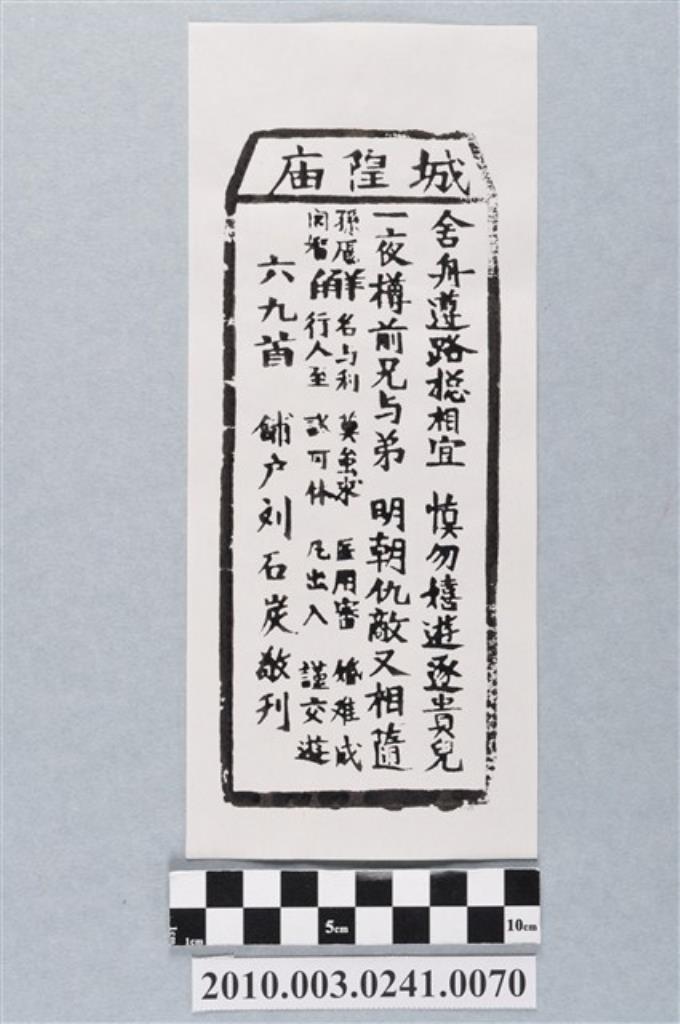 城隍庙
舍舟遵路揔相宜 慎勿嬉遊逐貴兒
一夜樽前兄与弟 明朝仇敵又相隨
孫龐 名与利 莫求 医用審 婚难成
智 行人至 訟可休 凡出入 謹交遊
六九首 舖户刘石炭敬刊
5cm
10cm
1cm
2010.003.0241.0070